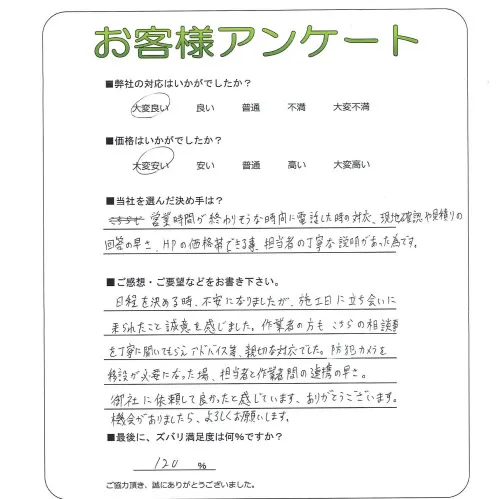 お客様アンケート
■弊社の対応はいかがでしたか？
大変良い 良い 普通 不満 大変不満
■価格はいかがでしたか？
大変安い 安い 普通 高い 大変高い
■当社を選んだ決め手は？
営業時間が終わりそうな時間に電話した時の対応、現地確認や見積りの
回答の早さ、HPの価格帯できる事、担当者の丁寧な説明があった為です。
■ご感想・ご要望などをお書き下さい。
日程を決める時、不安になりましたが、施工日に立ち会いに
来られたこと誠意を感じました。作業者の方も こちらの相談事
を丁寧に聞いてもらえアドバイス等、親切な対応でした。防犯カメラを
移設が必要になった場、担当者と作業者間の連携の早さ。
御社に依頼して良かったと感じています、ありがとうございます。
機会がありましたら、よろしくお願いします。
■最後に、ズバリ満足度は何%ですか？
120 %
ご協力頂き、誠にありがとうございました。